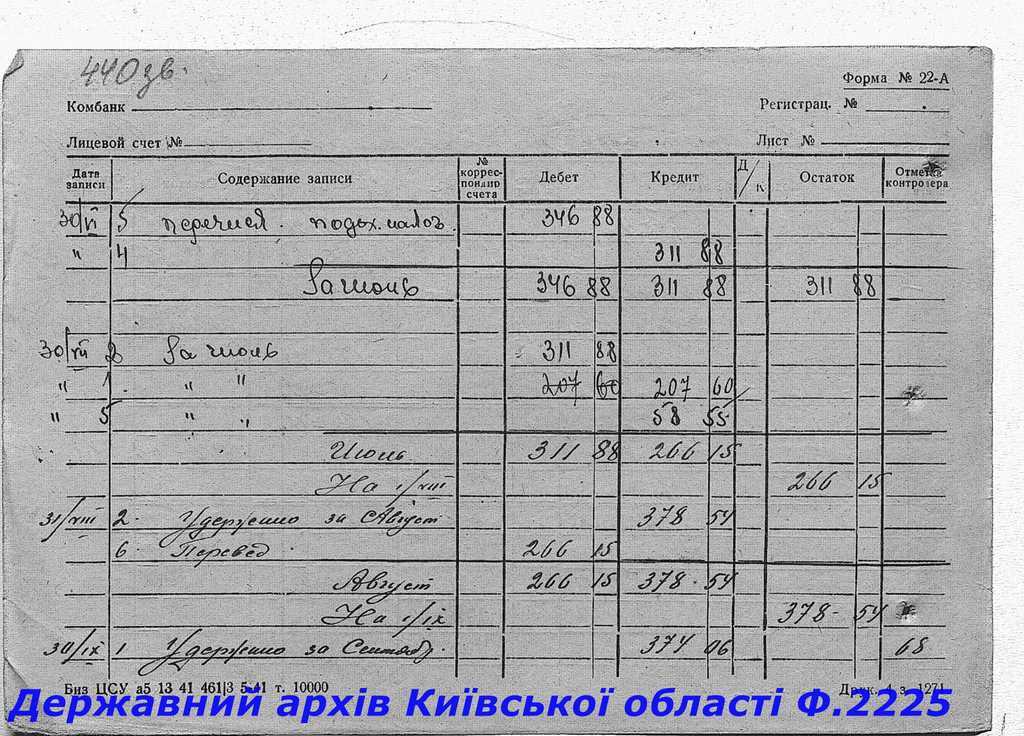 440 зв.
Форма № 22-А
Комбанк
Регистрац. №
Лицевой счет №
Лист №
Дата записи Содержание записи № коррес-пондир счета Дебет Кредит Д/К Остаток Отметка контролера
30/VI 5 перечисл. подох. налог. 346 88
" 4 311 88
За июнь 346 88 311 88 311 88
30/VII 2 За июль 311 88
" 1 " " 207 60 207 60
" 5 " " 58 55
Июль 311 88 266 15
На 1/VIII 266 15
31/VIII 2. Удержано за Август 378 54
6. Перевед. 266 15
Август 266 15 378 54
На 1/IX 378 54
30/IX 1 Удержано за Сентябр. 374 06 68
Биз ЦСУ а5 13 41 461|3 5-41 т. 10000
Друк. 4 з. 1271
Державний архів Київської області Ф.2225